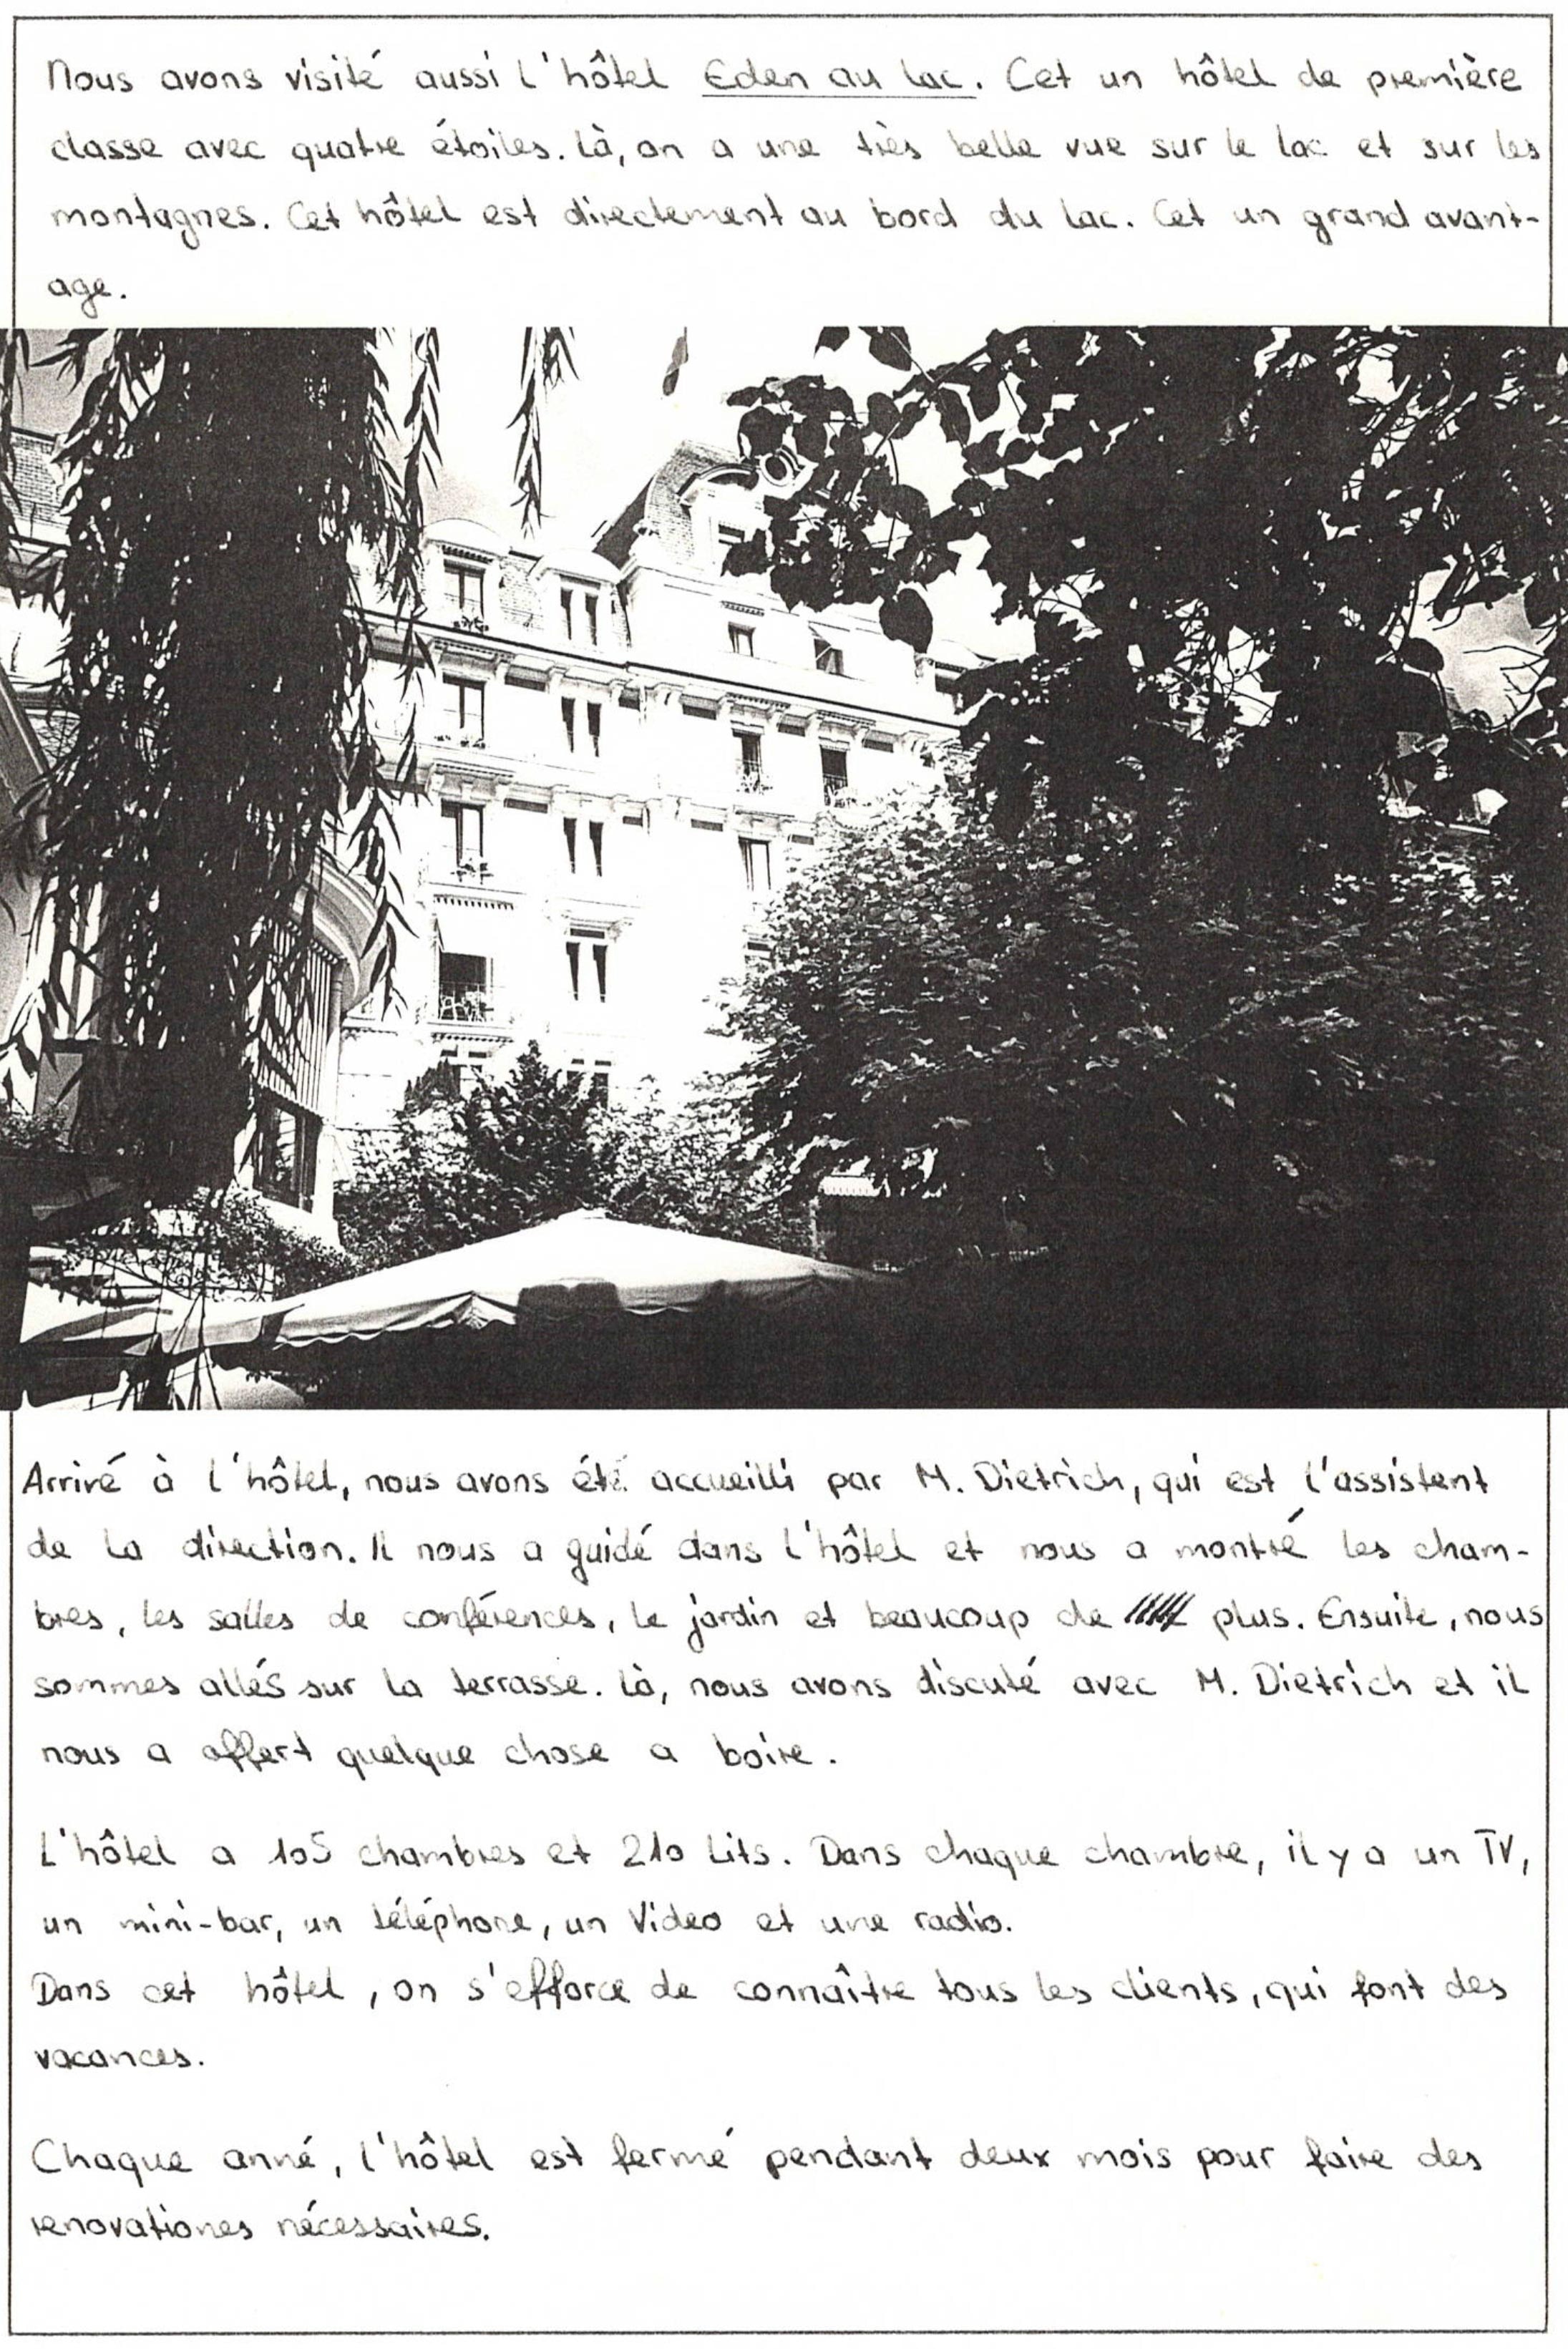 Nous avons visité aussi l'hôtel Eden au Lac. Cet un hôtel de première
classe avec quatre étoiles. Là, on a une très belle vue sur le lac et sur les
montagnes. Cet hôtel est directement au bord du lac. Cet un grand avant-
age.
Arrivé à l'hôtel, nous avons été accueilli par M. Dietrich, qui est l'assistent
de la direction. Il nous a guidé dans l'hôtel et nous a montré les cham-
bres, les salles de conférences, le jardin et beaucoup de plus. Ensuite, nous
sommes allés sur la terrasse. Là, nous avons discuté avec M. Dietrich et il
nous a offert quelque chose a boire.
L'hôtel a 105 chambres et 210 lits. Dans chaque chambre, il y a un TV,
un mini-bar, un téléphone, un Video et une radio.
Dans cet hôtel, on s'efforce de connaître tous les clients, qui font des
vacances.
Chaque anné, l'hôtel est fermé pendant deux mois pour faire des
renovationes nécessaires.